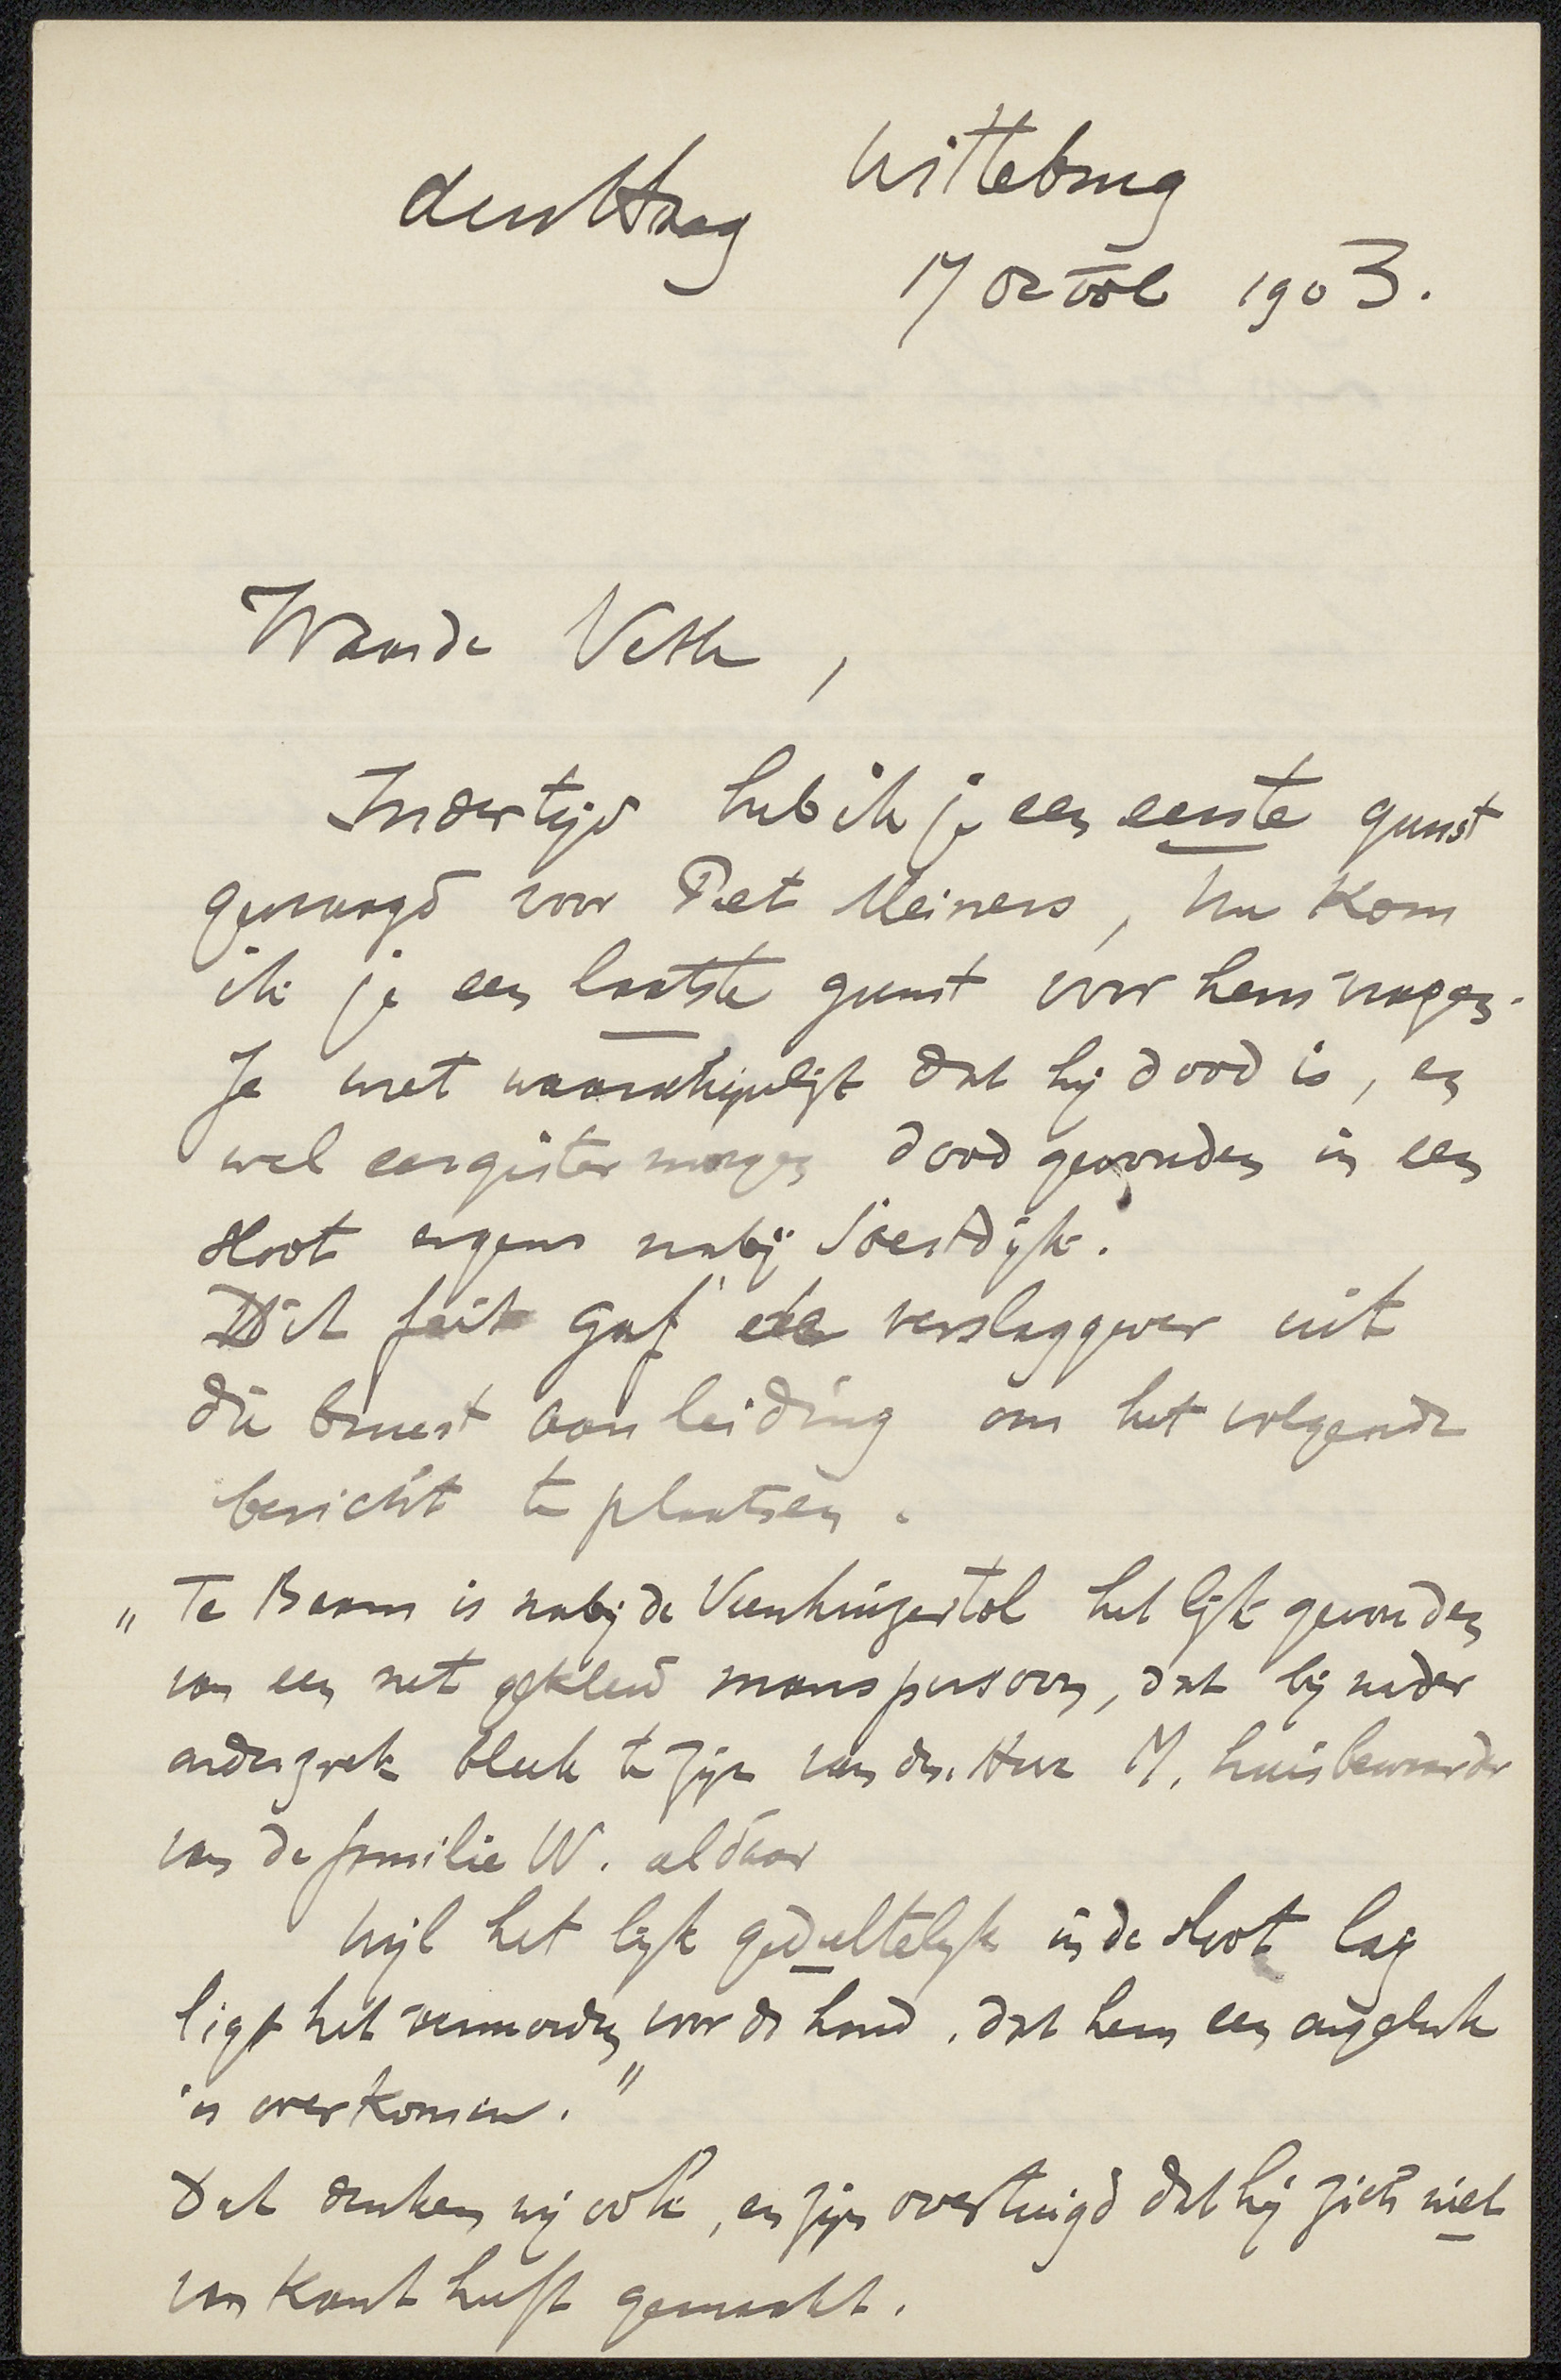 Wittebrug
den Haag
17 octob 1903.
Waarde Veth,
Indertijd heb ik je een eerste gunst
gevraagd voor Piet Meiners, nu kom
ik je een laatste gunst voor hem vragen.
Je weet waarschijnlijk dat hij dood is, en
wel eergister morgen dood gevonden in een
sloot ergens nabij Soestdijk.
Dit feit gaf de verslaggever uit
die buurt aanleiding om het volgende
bericht te plaatsen.
„Te Baarn is nabij de Veenhuizertol het lijk gevonden
van een net gekleed manspersoon, dat bij nader
onderzoek bleek te zijn van den Heer M, huisbewaarder
van de familie W. aldaar
Wijl het lijk gedeeltelijk in de sloot lag
ligt het vermoeden voor de hand, dat hem een ongeluk
is overkomen."
Dat denken wij ook, en zijn overtuigd dat hij zich niet
van kant heeft gemaakt.